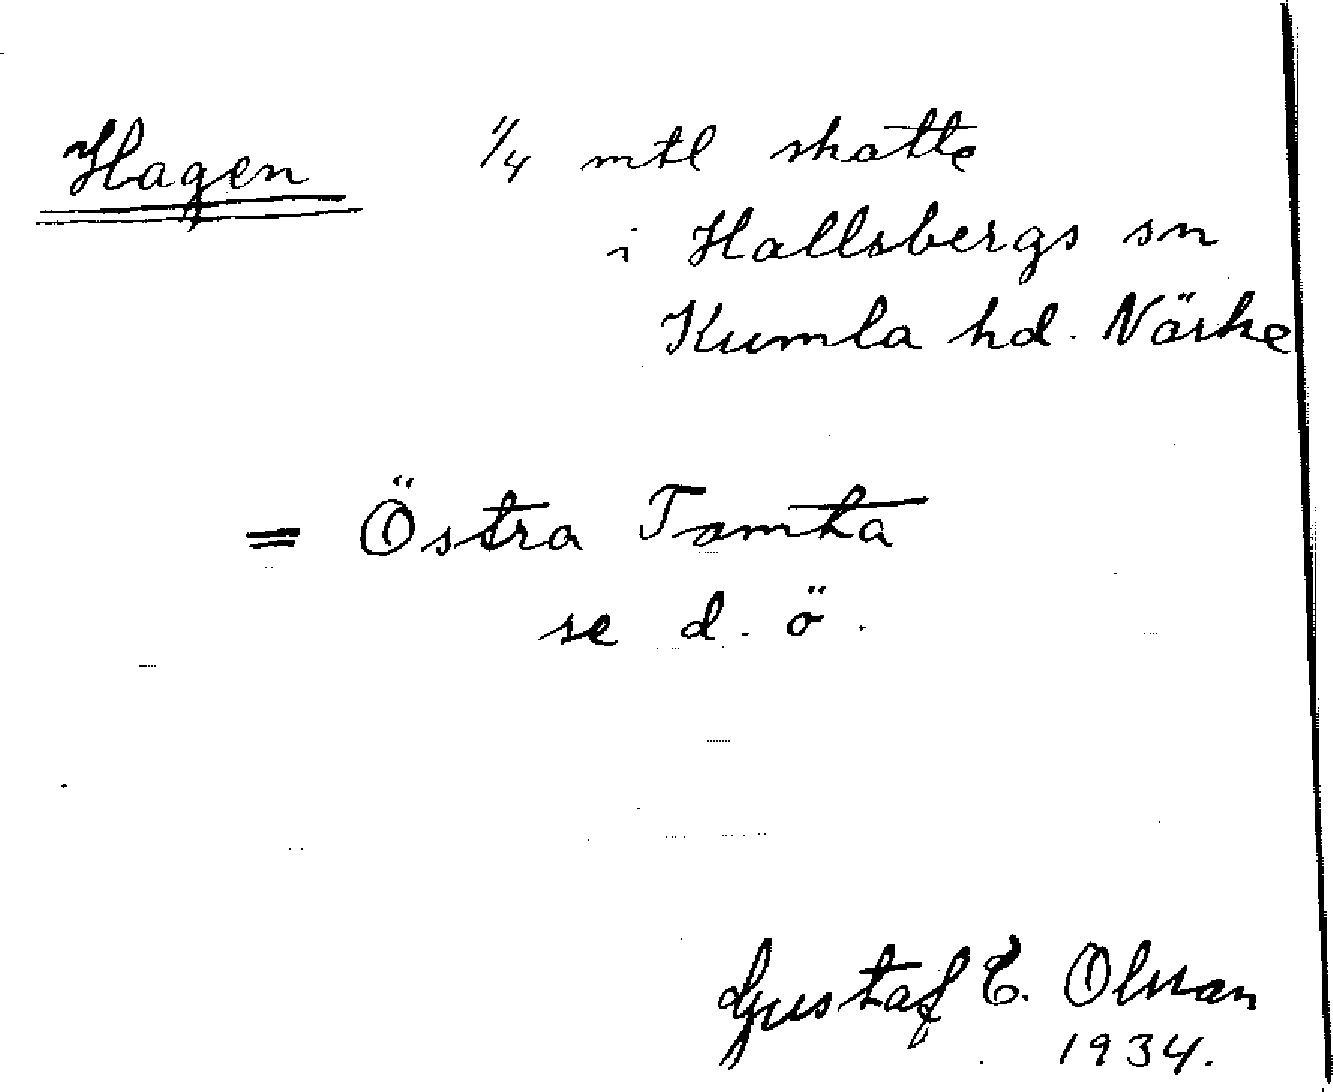 Hagen 1/4 mtl skatte
i Hallsbergs sn
Kumla hd. Närke
= Östra Tomta
se d. ö.
Gustaf E. Olsson
1934.